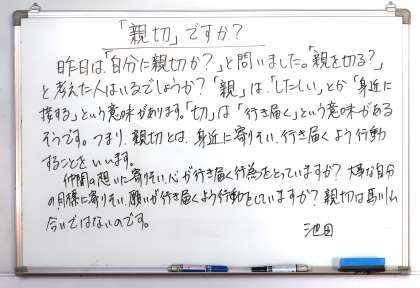 「親切」ですか?
昨日は、「自分に親切か?」と問いました。「親を切る?」
と考えた人はいるでしょうか?「親」は、「したしい」とか「身近に
接する」という意味があります。「切」は「行き届く」という意味がある
そうです。つまり、親切とは、身近に寄りそい、行き届くよう行動
することをいいます。
仲間の想いに寄りそい、心が行き届く行為をとっていますか?大事な自分
の目標に寄りそい、願いが行き届くよう行動をしていますか?親切は馴れ
合いではないのです。
池田